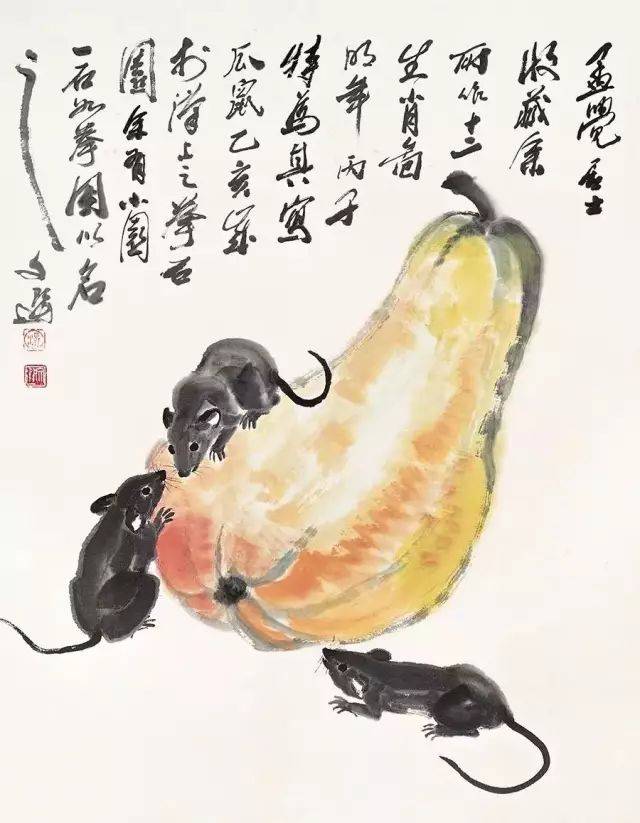 孟覺居士
收藏余
所作十二
生肖圖
明年丙子
特為其寫
瓜鼠乙亥歲
於滬上之拳石
園余有小園
一石如拳因以名
之